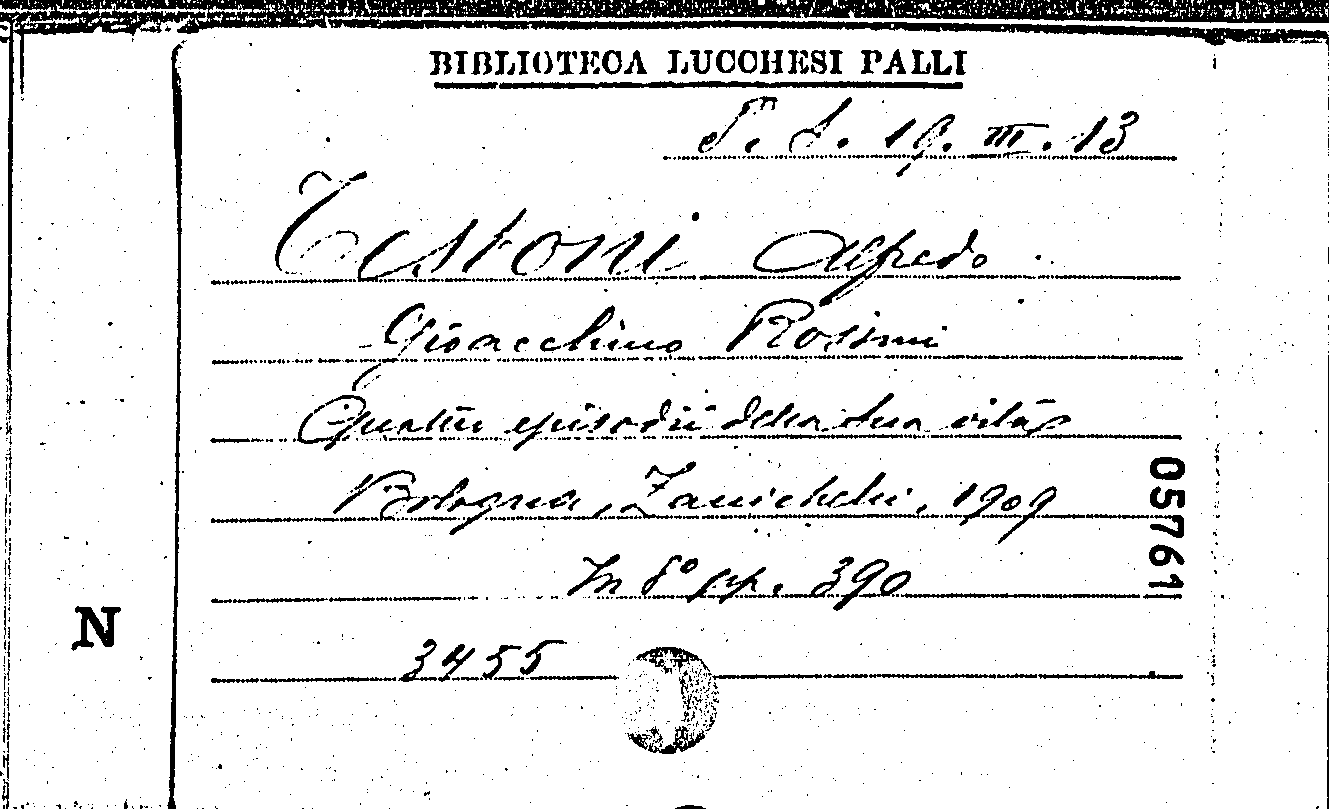 BIBLIOTECA LUCCHESI PALLI
S. S. 19. III. 13
Testoni Alfredo
Gioacchino Rossini
Quattro episodii della sua vita
Bologna, Zanichelli, 1909
In 8º pp. 390
3455
05761
N